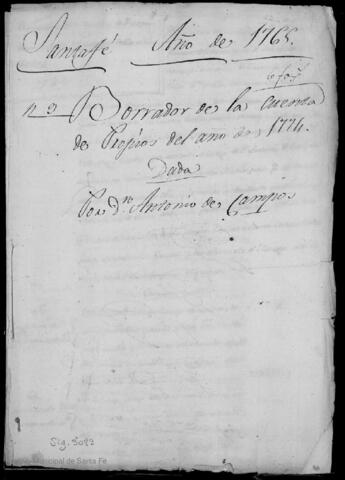 Santafé Año de 1765.
n 9 Borrador de la Cuenta
de Propios del año de 1774.
Dada
Por dⁿ Antonio de Campos
Sig. 5023
Municipal de Santa Fe